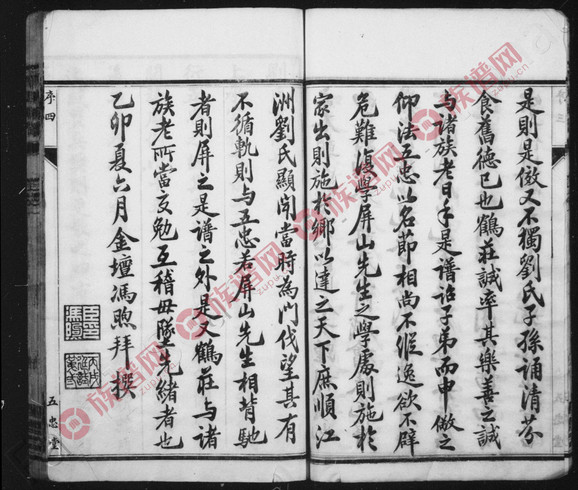 是則是倣又不獨劉氏子孫誦清芬
食舊德已也鶴莊誠率其樂善之誠
與諸族老日手是譜詔子弟而申儆之
仰法五忠以名節相尚不縱逸欲不辟
危難復學屏山先生之學處則施於
家出則施於鄉以達之天下庶順江
洲劉氏顯聞當時為門伐望其有
不循軌則与五忠若屏山先生相背馳
者則屏之是譜之外是又鶴莊与諸
族老所當交勉互稽毋墜先緒者也
乙卯夏六月金壇馮煦拜撰
臣印馮煦
序四
五忠堂
序三
族谱网
zupu.cn
族谱网
zupu.cn
族谱网
zupu.cn